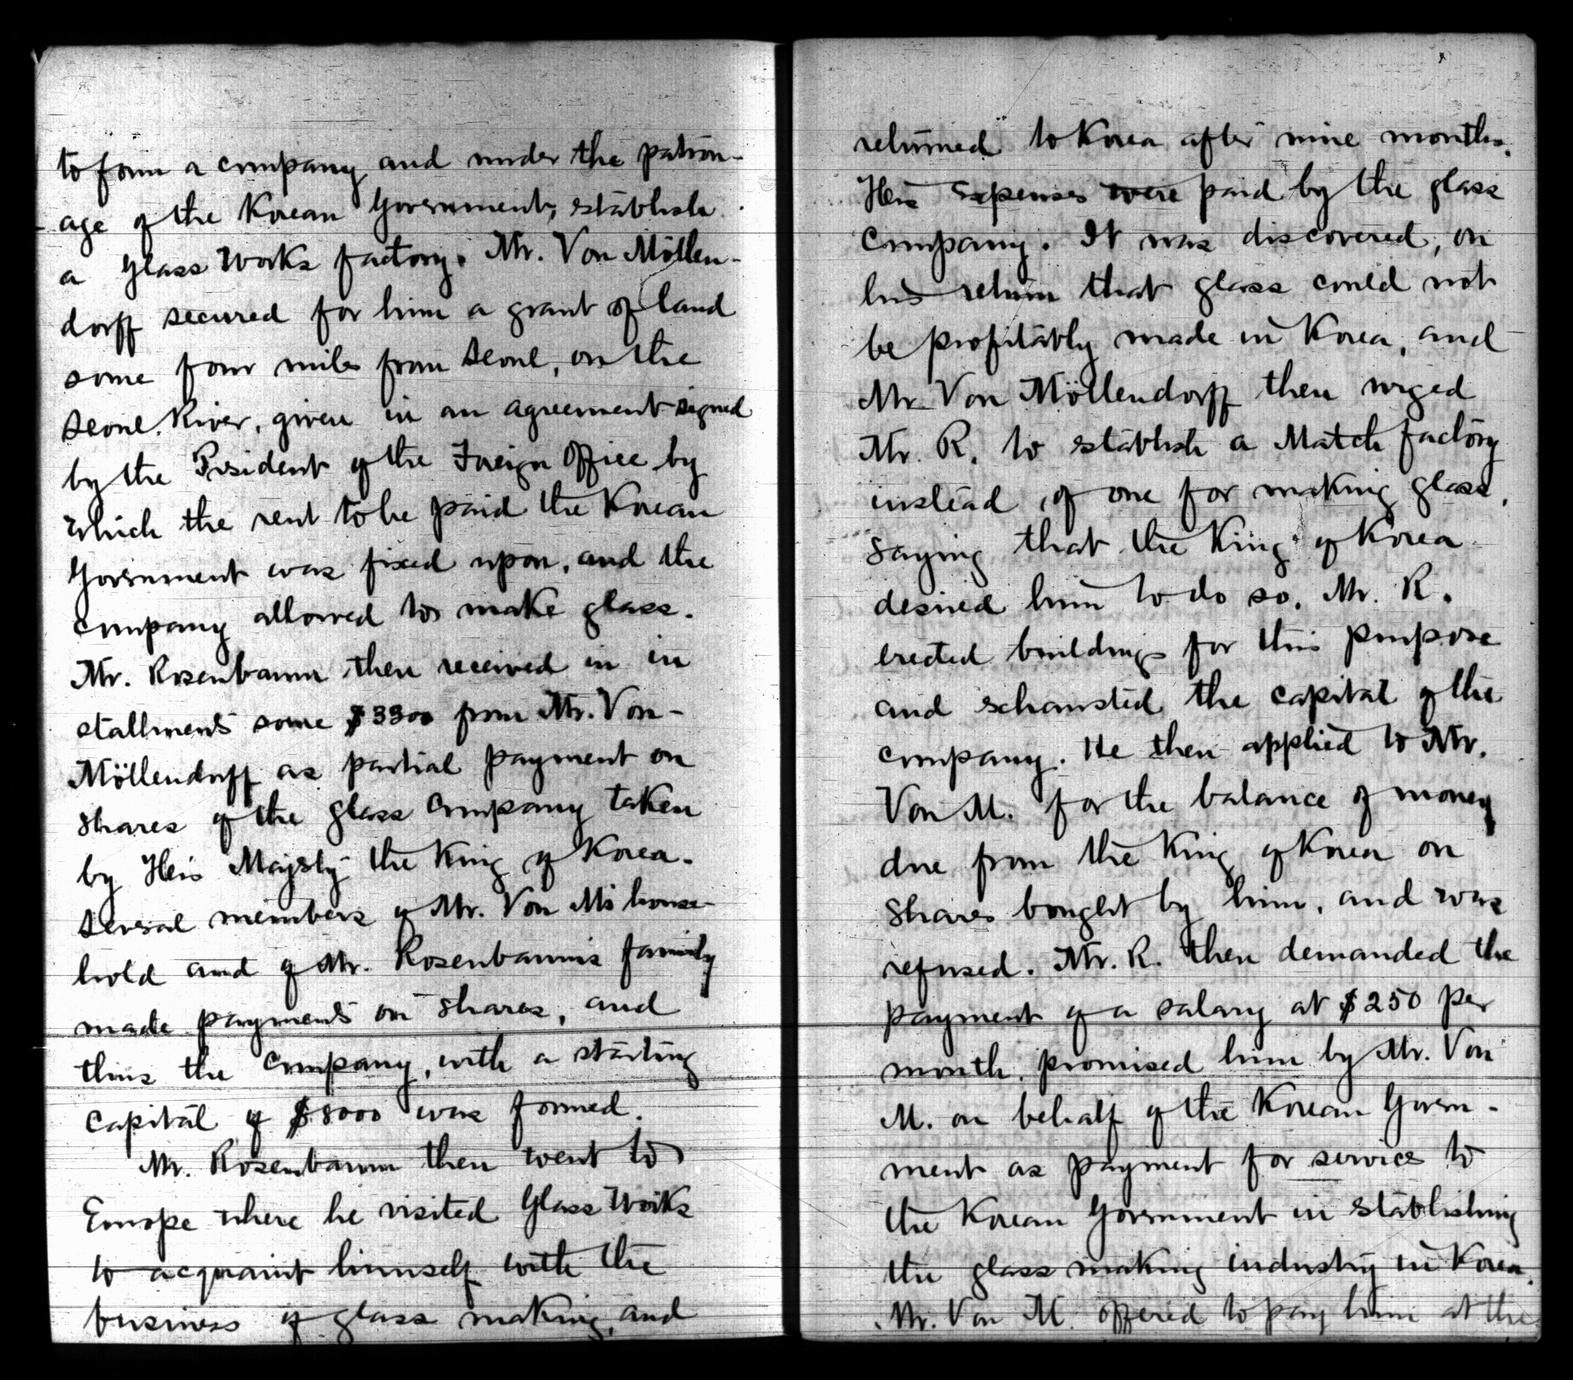 to form a company and under the patron-
age of the Korean Government, establish
a Glass Works factory. Mr. Von Möllen-
dorff secured for him a grant of land
some four miles from Seoul, on the
Seoul River, given in an agreement signed
by the President of the Foreign Office by
which the rent to be paid the Korean
Government was fixed upon, and the
company allowed to make glass.
Mr. Rosenbaum then received in in
stallments some $3300 from Mr. Von-
Möllendorff as partial payment on
shares of the glass company taken
by His Majesty the King of Korea.
Several members of Mr. Von M's house-
hold and of Mr. Rosenbaum's family
made payments on shares, and
thus the Company, with a starting
capital of $8000 was formed.
Mr. Rosenbaum then went to
Europe where he visited Glass Works
to acquaint himself with the
business of glass making, and
returned to Korea after nine months.
His expenses were paid by the glass
Company. It was discovered, on
his return that glass could not
be profitably made in Korea, and
Mr. Von Möllendorff then urged
Mr. R. to establish a Match factory
instead of one for making glass,
saying that the King of Korea
desired him to do so. Mr. R.
erected buildings for this purpose
and exhausted the capital of the
company. He then applied to Mr.
Von M. for the balance of money
due from the King of Korea on
shares bought by him, and was
refused. Mr. R. then demanded the
payment of a salary at $250 per
month, promised him by Mr. Von
M. on behalf of the Korean Govern-
ment as payment for service to
the Korean Government in establishing
the glass making industry in Korea.
Mr. Von M. offered to pay him at the